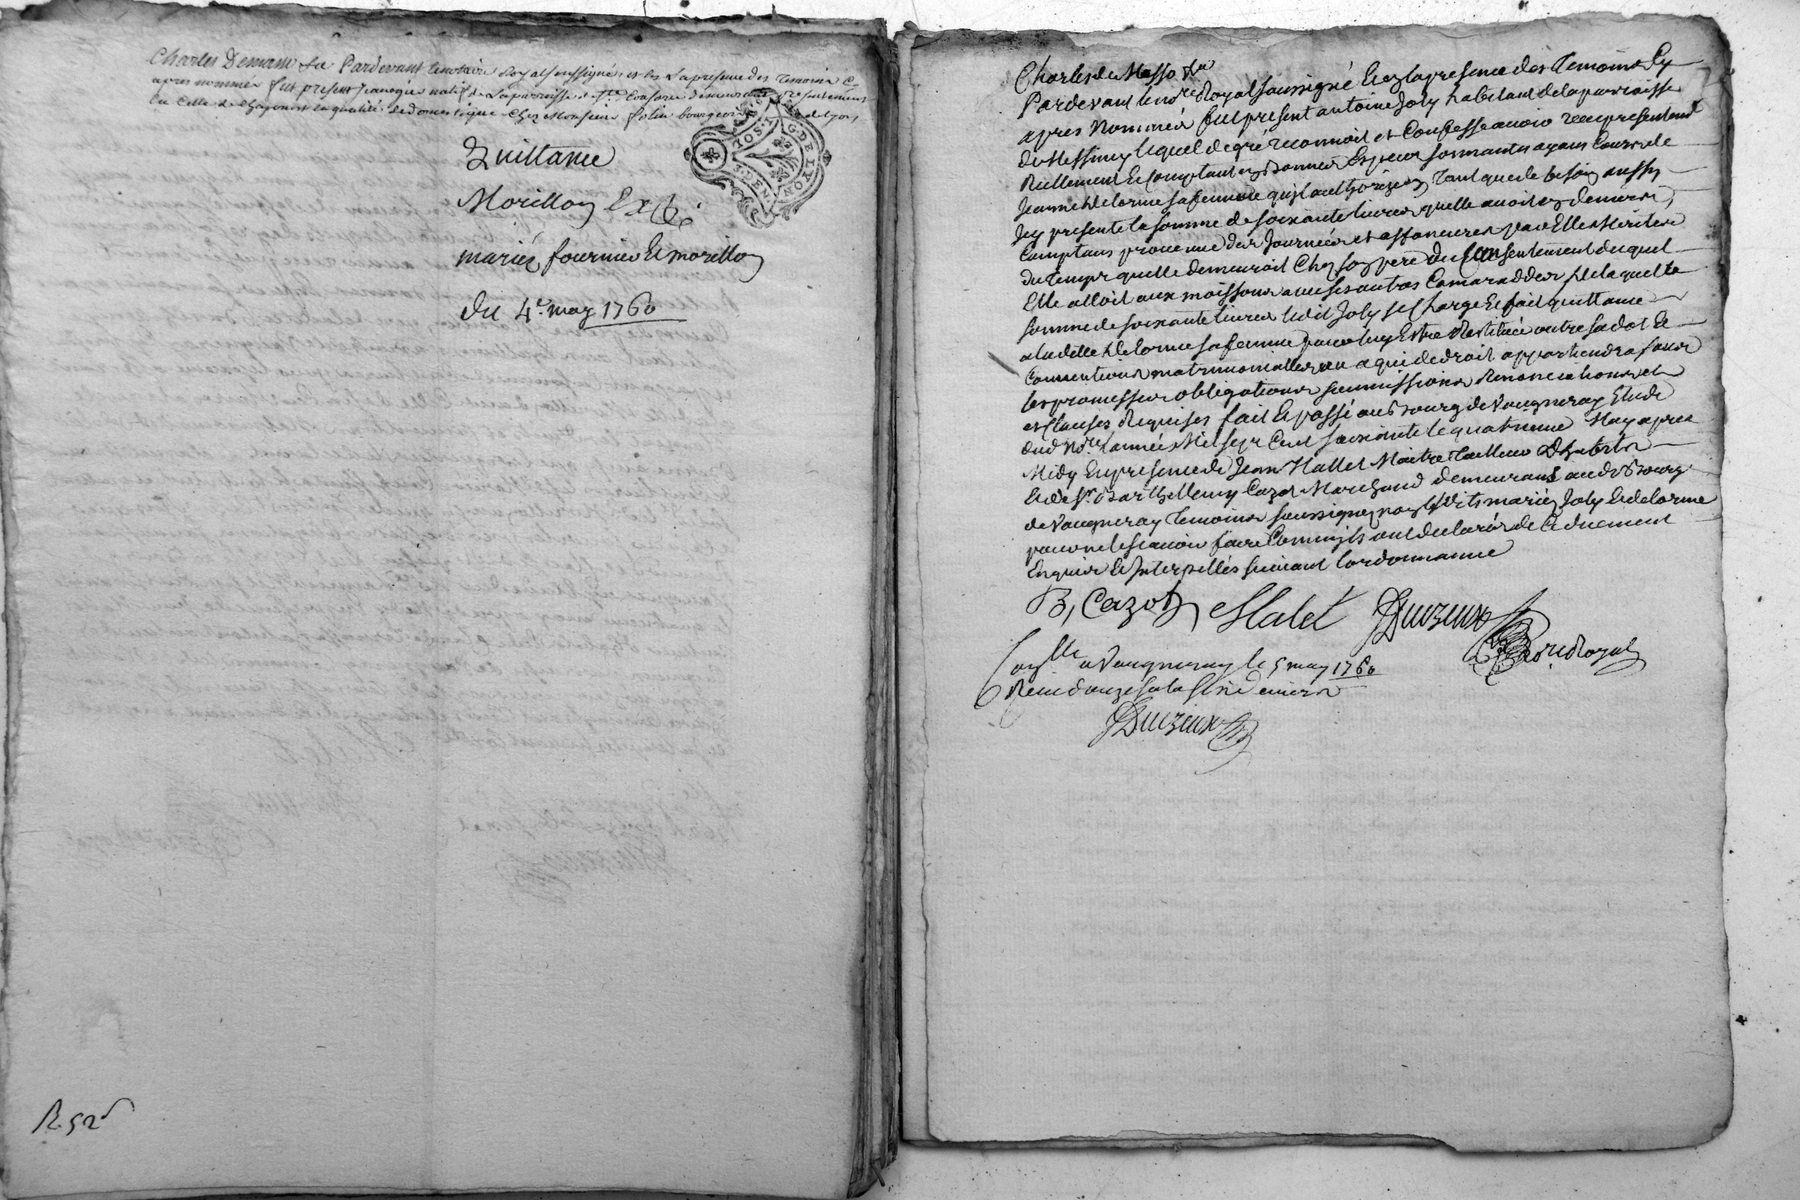 Charles Demasso &a Pardevant le notaire Royal soussigné, et en La presence des temoins Cy
apres nommés fut present natif de La parroisse de Ste
en celle de en qualité de domestique Chez Monsieur bourgeois de Lyon
G. DE LYON
Quittance
Morillon
mariéz fournier & morillon
du 4e. may 1760
R. 52
Charles de Masso &a
Pardevant le nore Royal soussigné & en la presence des temoins Cy
apres Nommés fut present antoine Joly habitant de la parroisse
de Messimy lequel de gré reconnoit et Confesse avoir receu presentement
Réellement & comptant en bonnes Especes sonnantes ayans Cours de
Jeanne delorme sa femme qu'il authorize en tant que de besoin aussy
Icy presente la somme de soixante livres quelle avoit en deniers
Comptans provenue des Journées et par Elle
du temps quelle demeuroit Chez son pere du Consentement duquel
Elle alloit aux moissons avec ses autres Camaraddes de laquelle
somme de soixante livres ledit Joly se Charge & fait quittance
a ladette delorme sa femme pour luy Estre Restitué outre sa dot &
Conventions matrimonialles ou a qui de droit appartiendra sous
les promesses obligations soumissions Renonciations et
et Clauses Requises fait & passé au Bourg de Vaugneray Etude
dud. Nore. l'année Mil sept Cent soixante le quatrieme May apres
Midy En presence de Jean Hallet Maitre tailleur d'habits
& de Sr. Barthellemy Cazot Marchand demeurans audt Bourg
de Vaugneray temoins soussignez non lesdits mariéz Joly & delorme
pour ne le scavoir faire Comm'ils ont declaré de Ce duement
Enquis & Interpellés suivant lordonnance
B, Cazot Halet
Nore. Royal
Conllé a Vaugneray le 5 may 1760
Receu douze sols six deniers